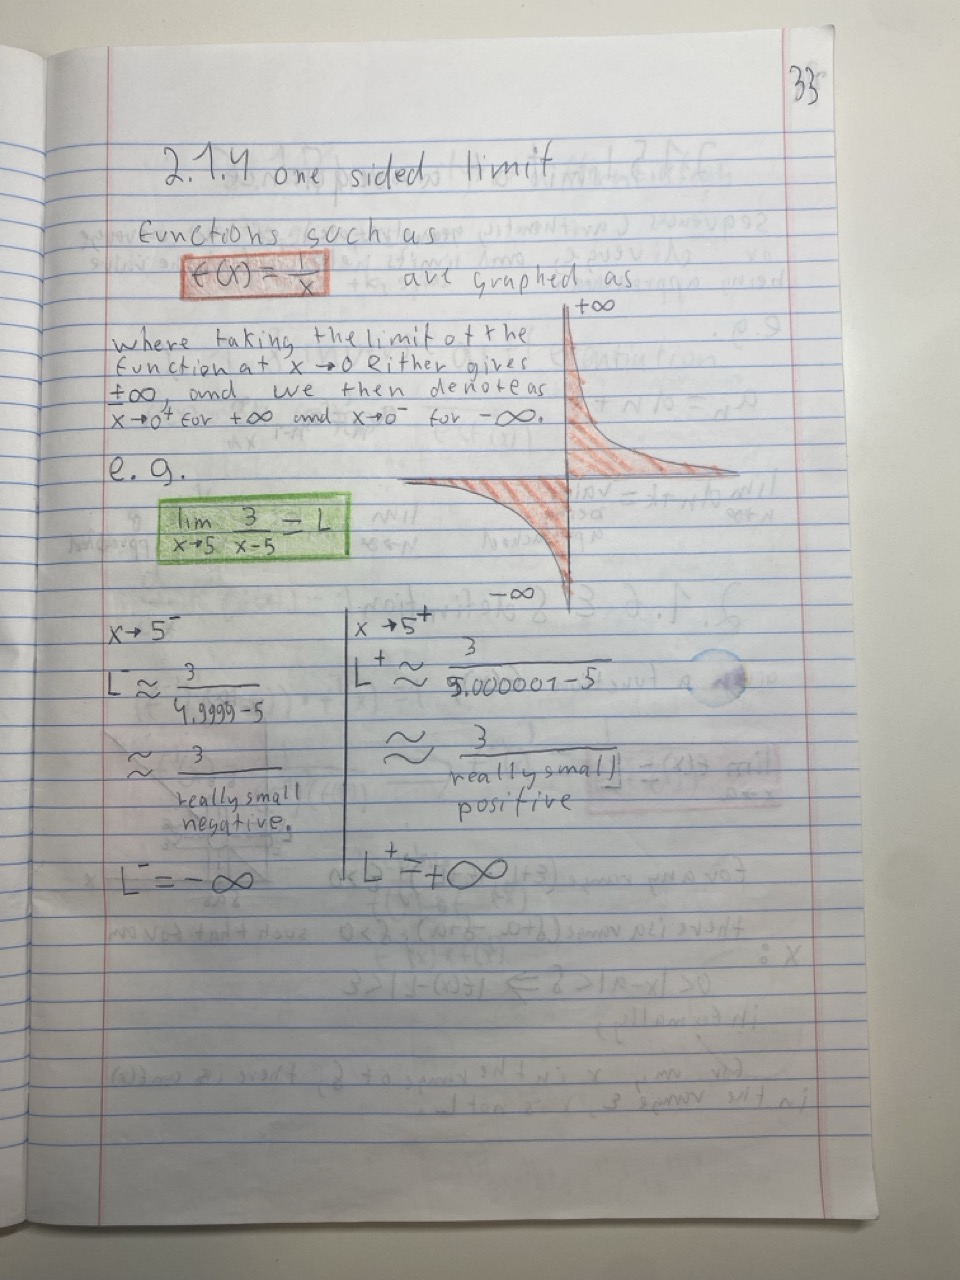 33
2.1.4 one sided limit
functions such as
f(x) = 1/x are graphed as
+∞
where taking the limit of the
function at x→0 either gives
±∞, and we then denote as
x→0⁺ for +∞ and x→0⁻ for -∞.
e.g.
lim x→5 3/(x-5) = L
-∞
x→5⁻
L⁻ ≈ 3/(4.9999-5)
≈ 3/
really small
negative.
L⁻ = -∞
x→5⁺
L⁺ ≈ 3/(5.000001-5)
≈ 3/
really small
positive
L⁺ = +∞